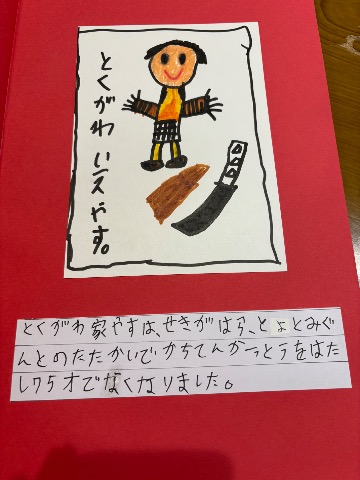 とくがわいえやす。
とくがわ家やすは、せきがはら、とよとみぐ
んとのたたかいでかちてんか一っとうをはた
し75才でなくなりました。